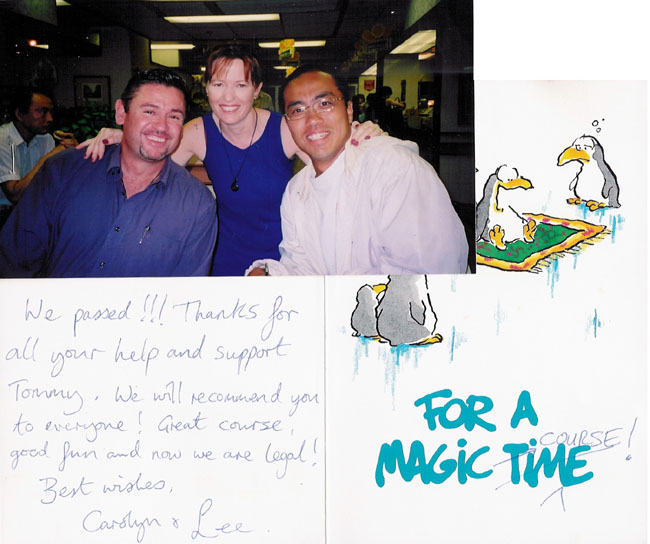 We passed!!! Thanks for
all your help and support
Tommy. We will recommend you
to everyone! Great course,
good fun and now we are legal!
Best wishes,
Carolyn & Lee.
FOR A
MAGIC TIME
COURSE!